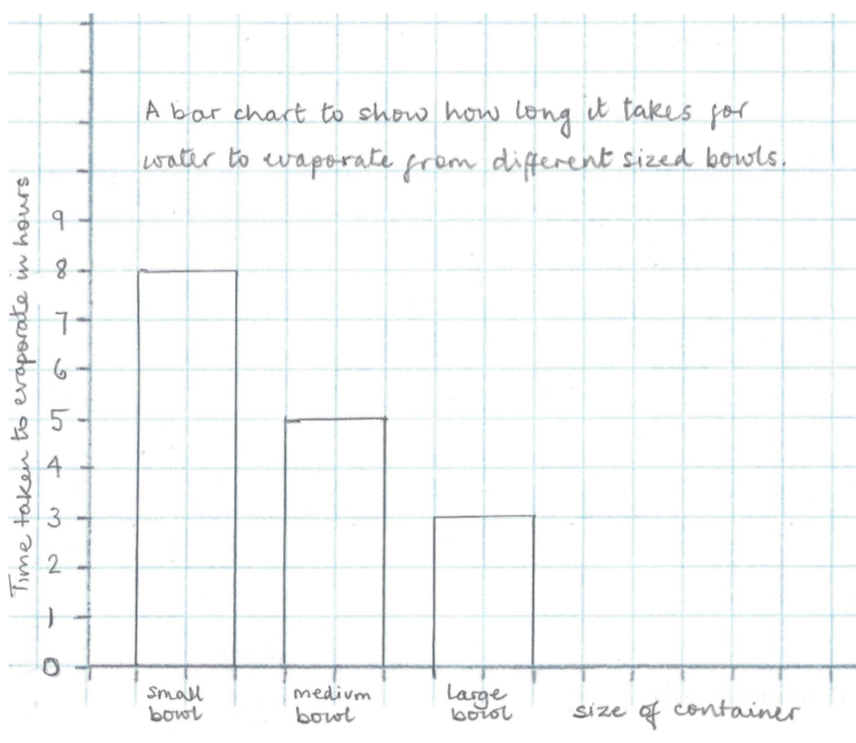 A bar chart to show how long it takes for
water to evaporate from different sized bowls.
Time taken to evaporate in hours
9
8
7
6
5
4
3
2
1
0
small
bowl
medium
bowl
Large
bowl
size of container